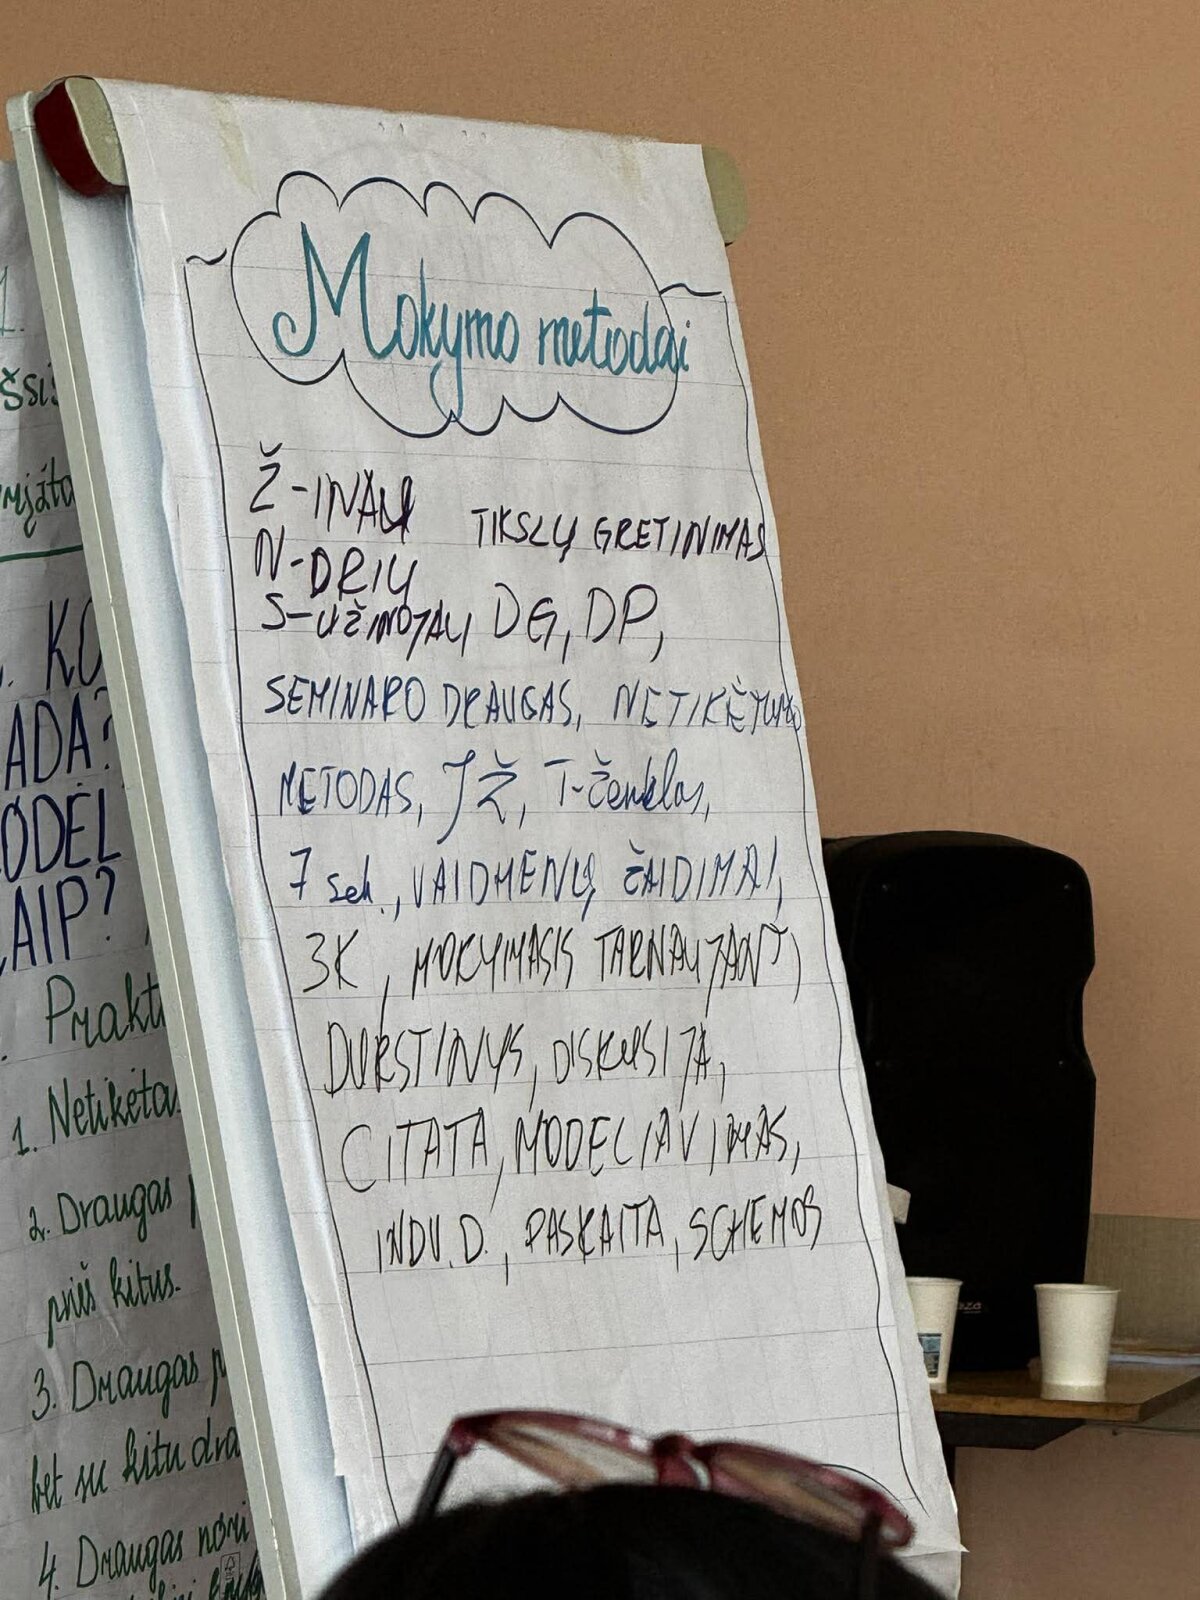 Mokymo metodai
Ž-INAU TIKSLŲ GRETINIMAS
N-DRIU
S-UŽINOJAU DG, DP,
SEMINARO DRAUGAS, NETIKĖTUMO
METODAS, JŽ, T-Ženklas,
7 sek., VAIDMENŲ ŽAIDIMAI,
3K, MOKYMASIS TARNAUJANT,
DURSTINYS, DISKUSIJA,
CITATA, MODELIAVIMAS,
INDV.D., PASKAITA, SCHEMOS
1.
KO
ADA?
ODEL
AIP?
Prakt
1. Netikėta
2. Draugas
prieš kitus.
3. Draugas p
bet su kitu dra
4. Draugas nori